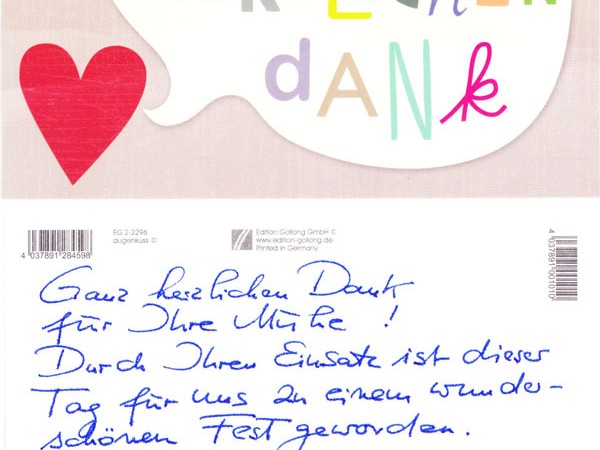 dANk
EG 2-2296
augenkuss ©
Edition Gollong GmbH ©
www.edition-gollong.de
Printed in Germany
4 037891 284598
4 037891 001010
Ganz herzlichen Dank
für Ihre Mühe !
Durch Ihren Einsatz ist dieser
Tag für uns zu einem wunder-
schönen Fest geworden.